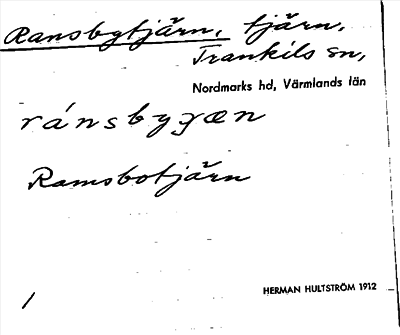 Ransbytjärn, tjärn,
Trankils sn,
Nordmarks hd, Värmlands län
ránsbyȷæn
Ramsbotjärn
HERMAN HULTSTRÖM 1912
/